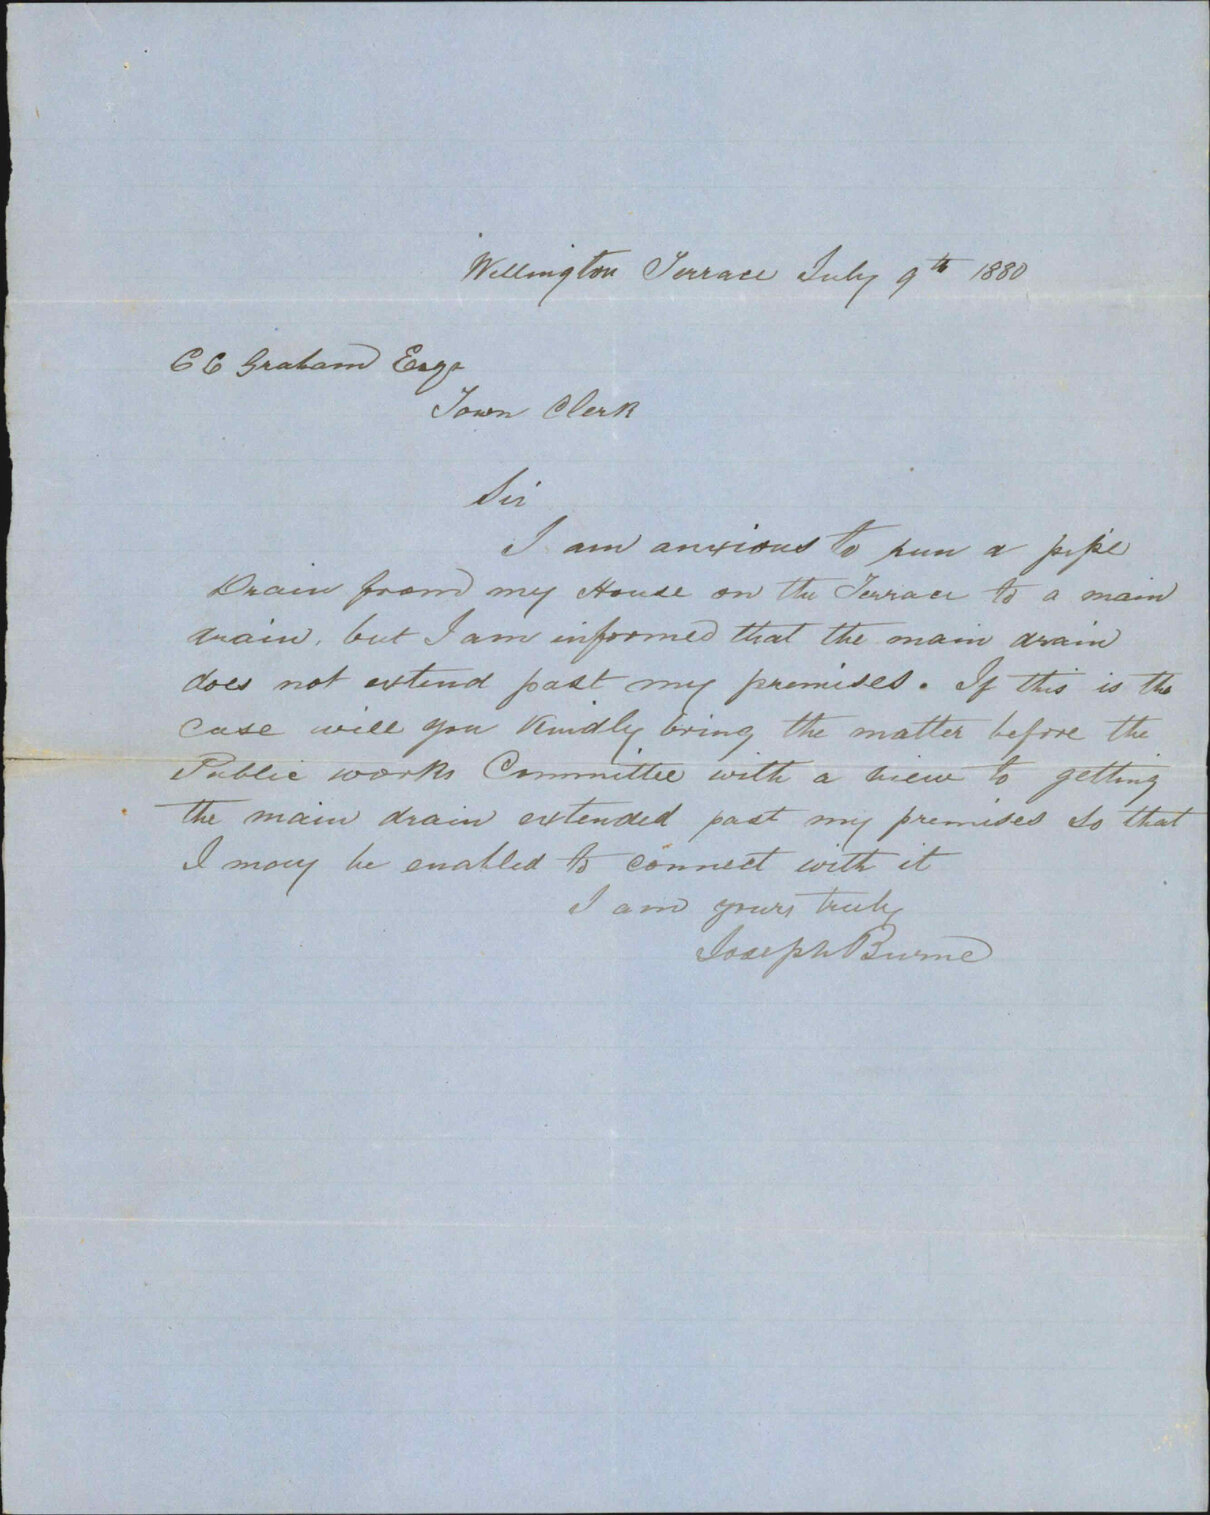 Wellington Terrace July 9th 1880
C C Graham Esqr
Town Clerk
Sir
I am anxious to run a pipe
Drain from my House on the Terrace to a main
drain, but I am informed that the main drain
does not extend past my premises. If this is the
case will you kindly bring the matter before the
Public works Committee with a view to getting
the main drain extended past my premises so that
I may be enabled to connect with it
I am yours truly
Joseph Burne